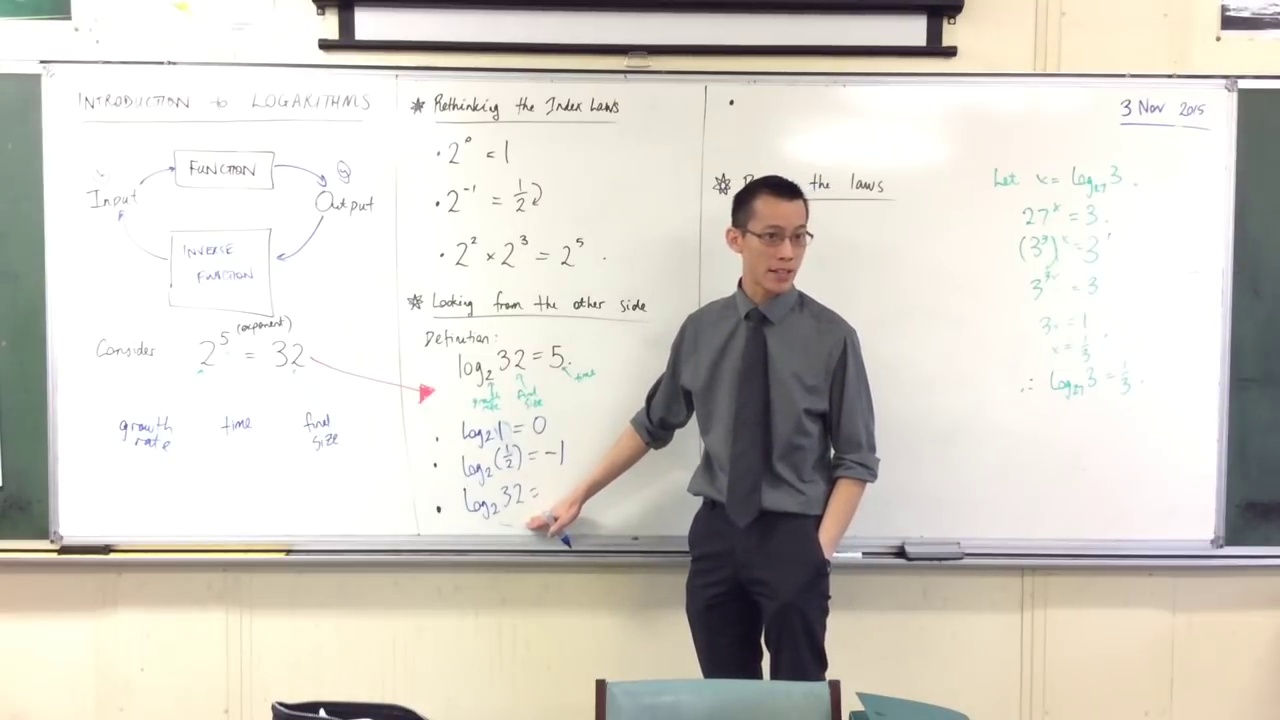 INTRODUCTION to LOGARITHMS
FUNCTION
Input
Output
INVERSE
FUNCTION
Consider 2⁵ = 32
(exponent)
growth
rate
time
final
size
Rethinking the Index Laws
2⁰ = 1
2⁻¹ = 1/2
2² × 2³ = 2⁵
Looking from the other side
Definition:
log₂ 32 = 5
growth
rate
final
size
time
log₂ 1 = 0
log₂ (1/2) = -1
log₂ 32 =
the laws
3 Nov 2015
Let x = log₂₇ 3
27ˣ = 3
(3³)ˣ = 3¹
3³ˣ = 3
3x = 1
x = 1/3
∴ log₂₇ 3 = 1/3